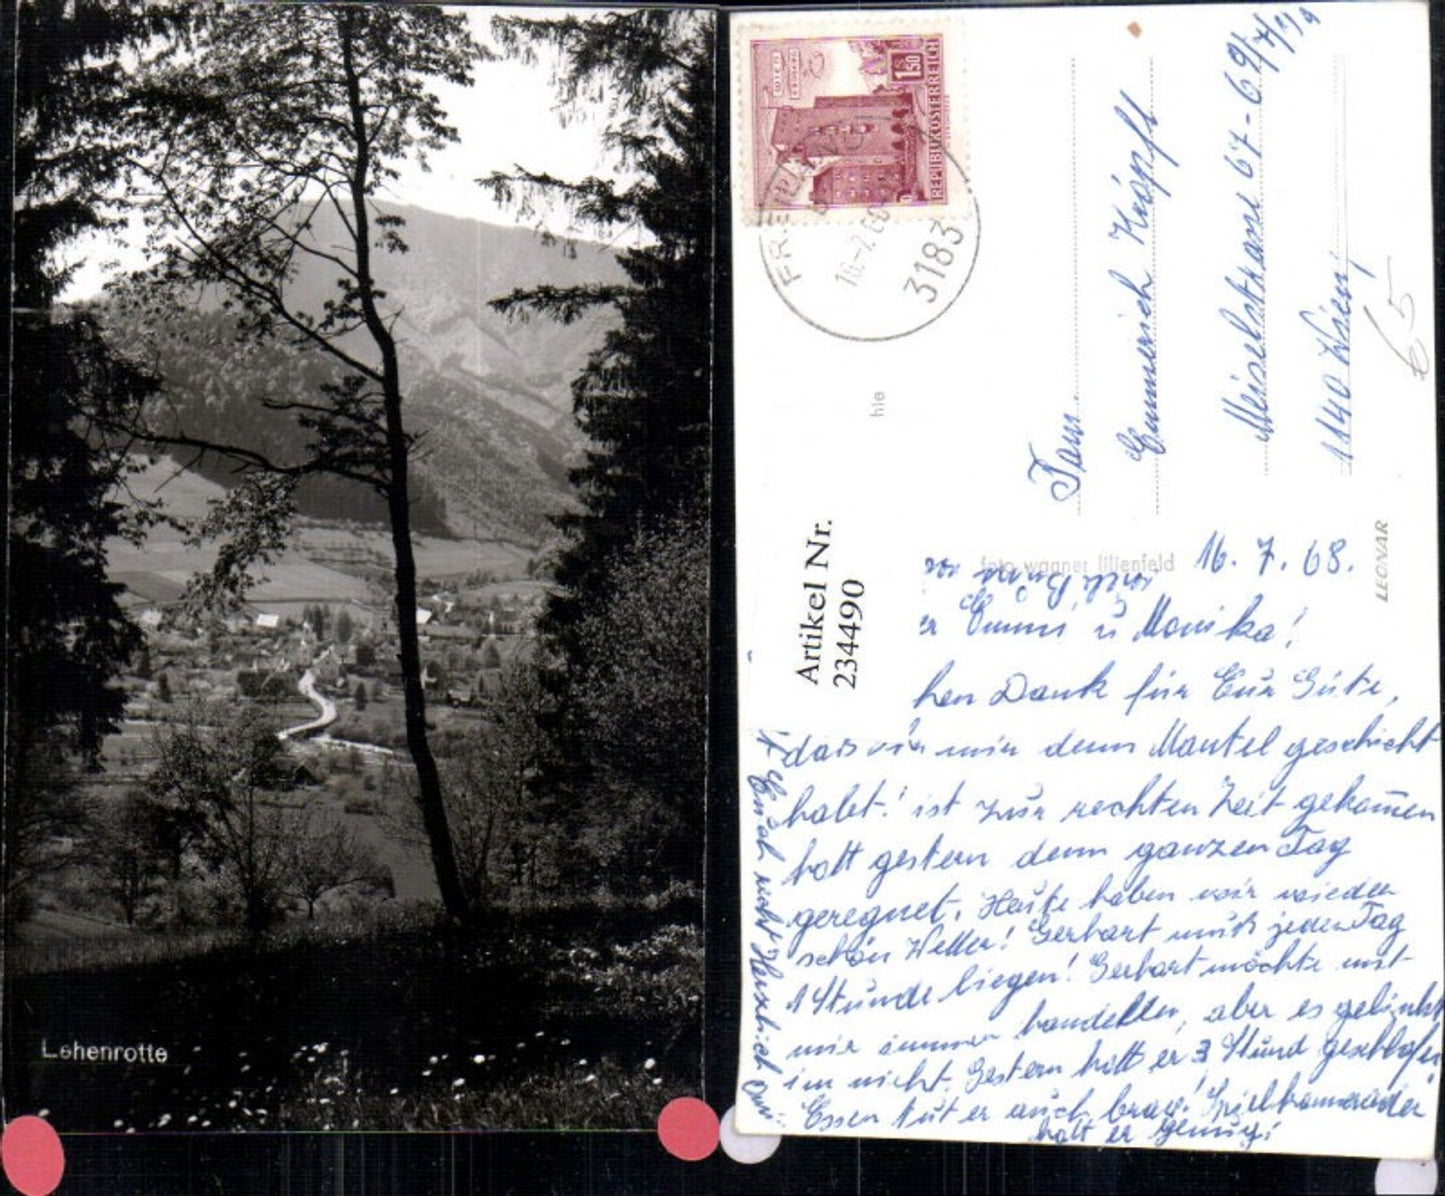 Lehenrotte
WIEN
ERDBERG
S 1.50
REPUBLIK ÖSTERREICH
3183
hle
Frau
Emmerich Knöpft
Meiselstrasse 67-69/7/1/9
1140 Wien
65
Artikel Nr.
234490
foto wagner lilienfeld
LEONAR
16. 7. 68.
Emmi u Monika!
hen Dank für Eure Güte,
das mir denn Mantel geschickt
habt! ist zur rechten Zeit gekommen
hatt gestern denn ganzen Tag
geregnet. Heute haben wir wieder
schön Wetter! Gerhart muß jeden Tag
1 Stunde liegen! Gerhart möchte mit
mir immer handelln, aber es gelinkt
im nicht. Gestern hatt er 3 Stund geschlafen
Essen tut er auch brav! Spielkameraden
hatt er genug!
Euch recht Herzlich